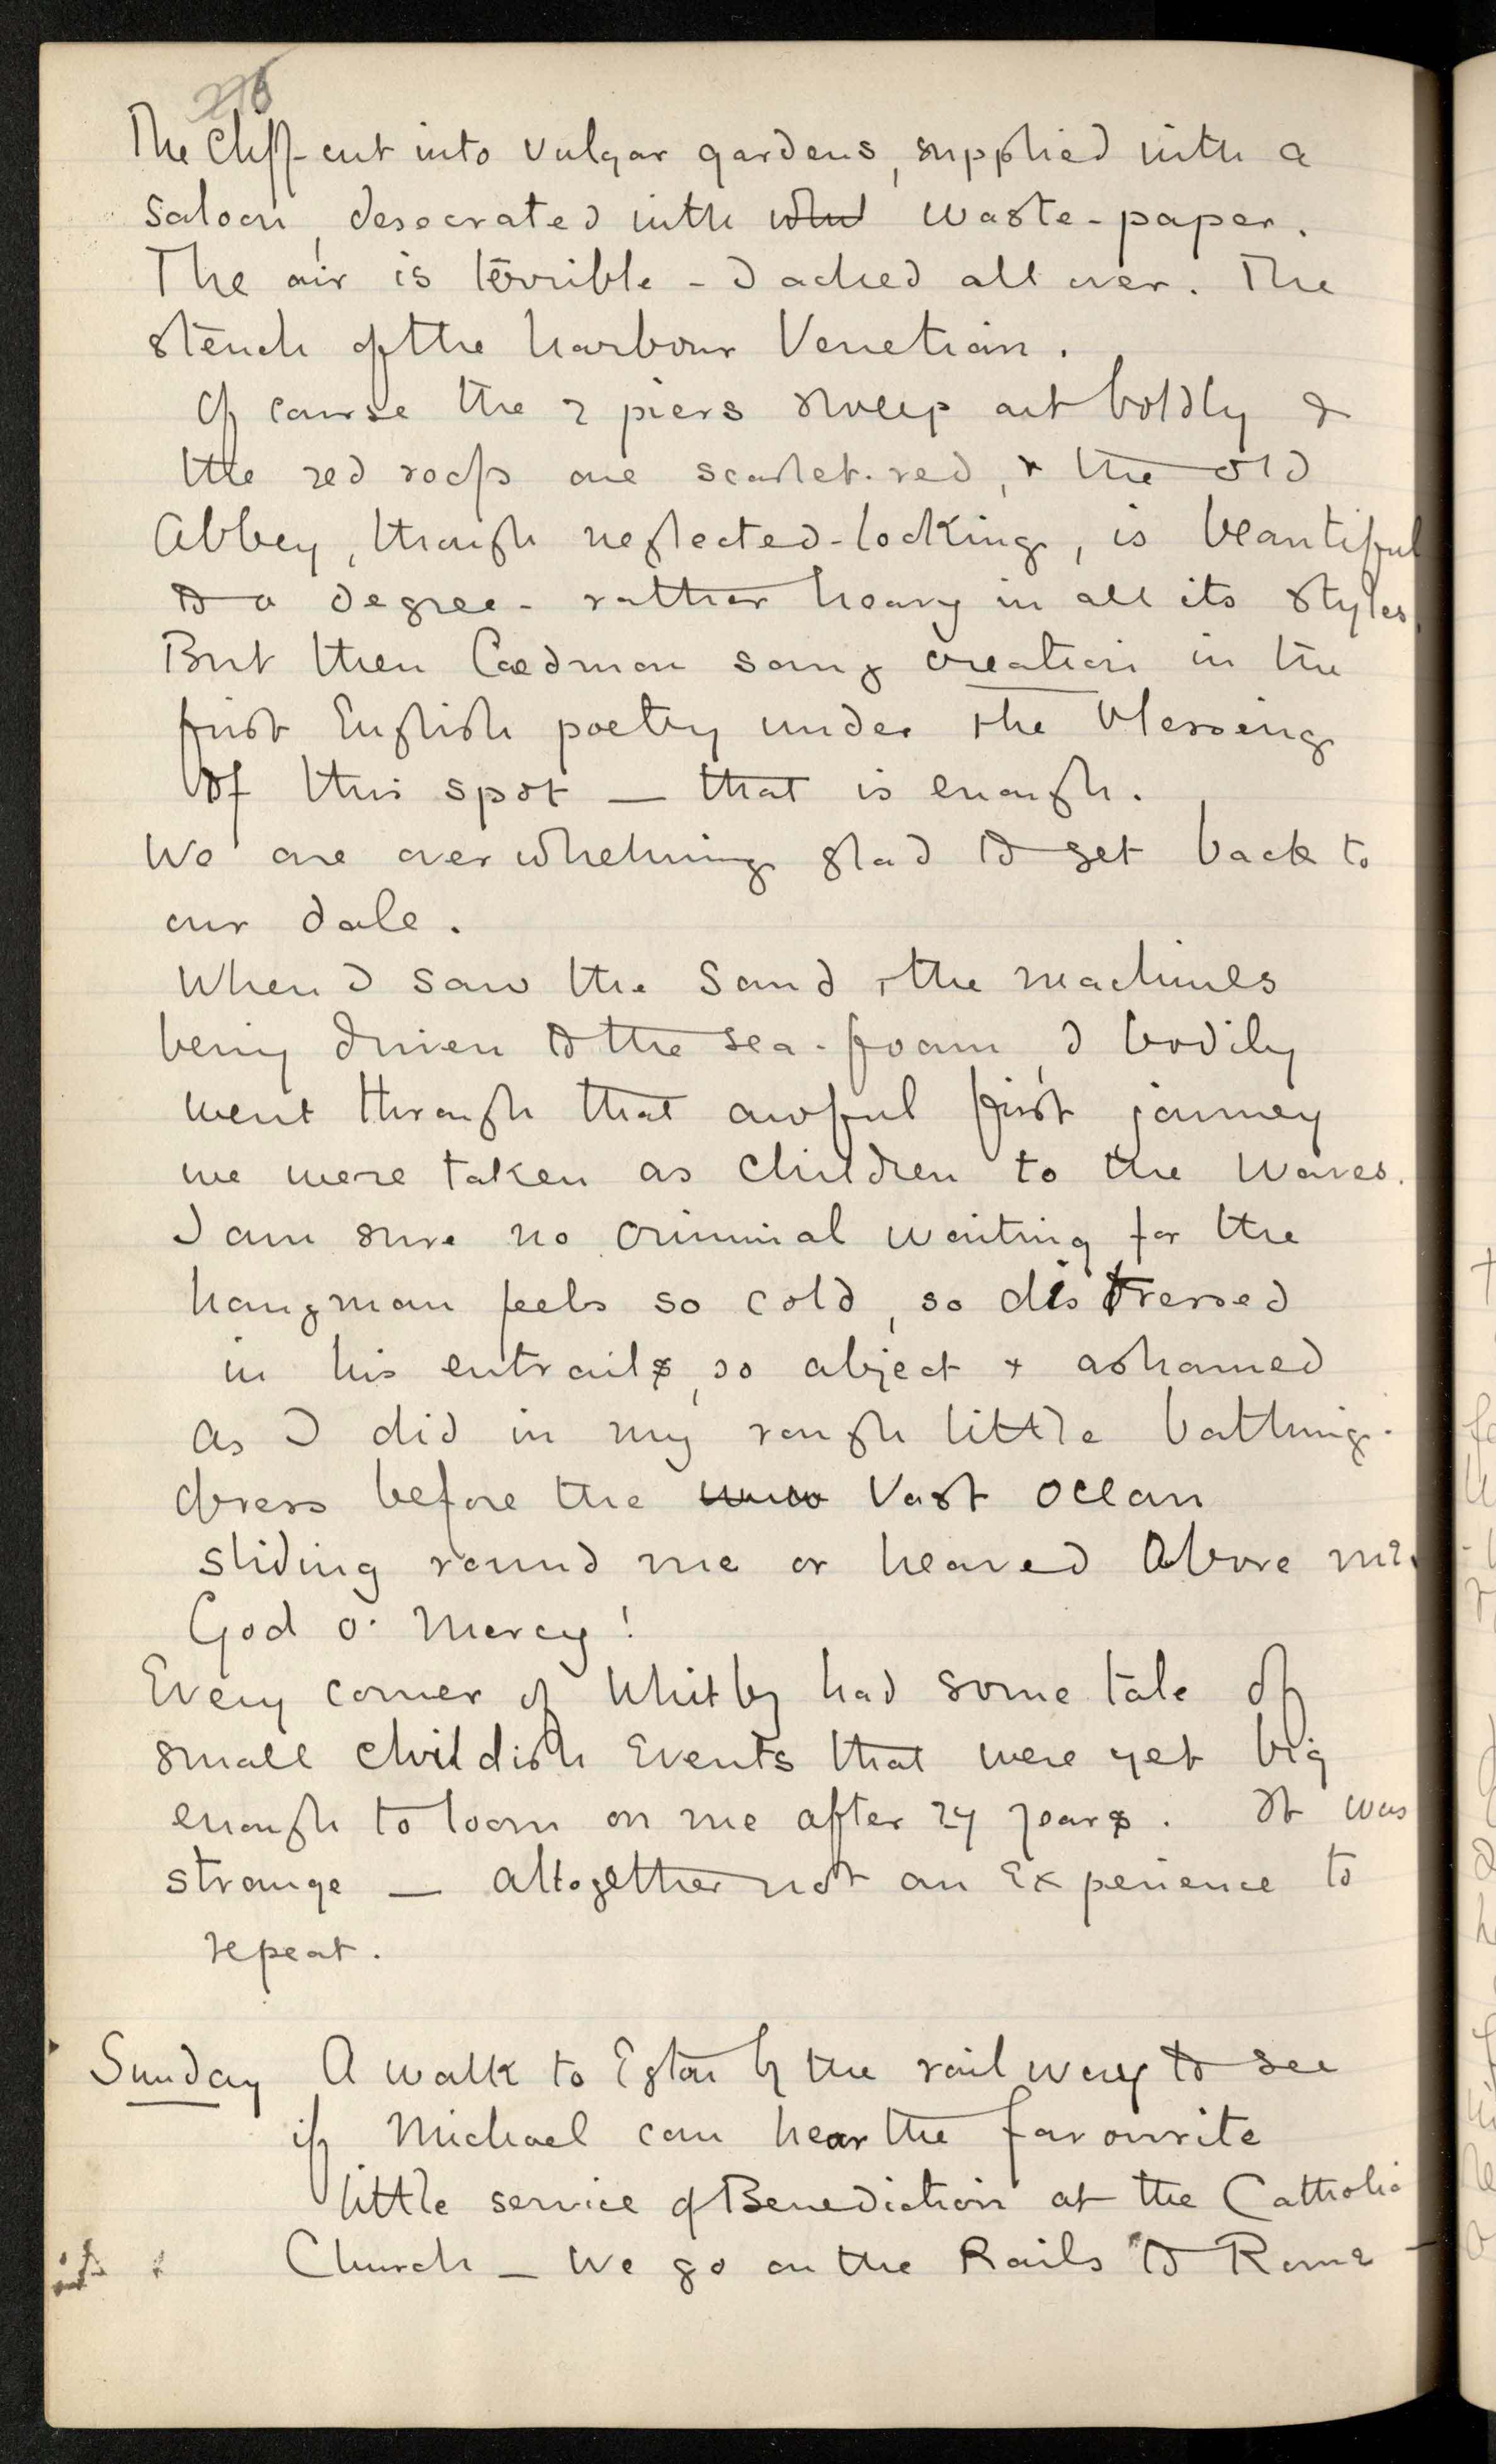 The Cliff-cut into vulgar gardens, supplied with a
saloon, desecrated with waste-paper.
The air is terrible - I ached all over. The
stench of the harbour Venetian.
Of course the 2 piers sweep out boldly &
the red roofs are scarlet-red, & the old
Abbey, though neglected-looking, is beautiful
to a degree - rather heavy in all its styles.
But then Caedmon sang creation in the
first English poetry under the blessing
of this spot — that is enough.
We are overwhelming glad to get back to
our dale.
When I saw the sand & the machines
being driven to the sea-foam, I bodily
went through that awful first journey
we were taken as children to the waves.
I am sure no criminal waiting for the
hangman feels so cold, so distressed
in his entrails, so abject & ashamed
as I did in my rough little bathing-
dress before the vast ocean
sliding round me or heaved above me.
God o' Mercy!
Every corner of Whitby had some tale of
small childish events that were yet big
enough to loom on me after 24 years. It was
strange — altogether not an experience to
repeat.
Sunday A walk to Egton by the railway to see
if Michael can hear the favourite
little service of Benediction at the Catholic
Church — We go on the Rails to Rome —